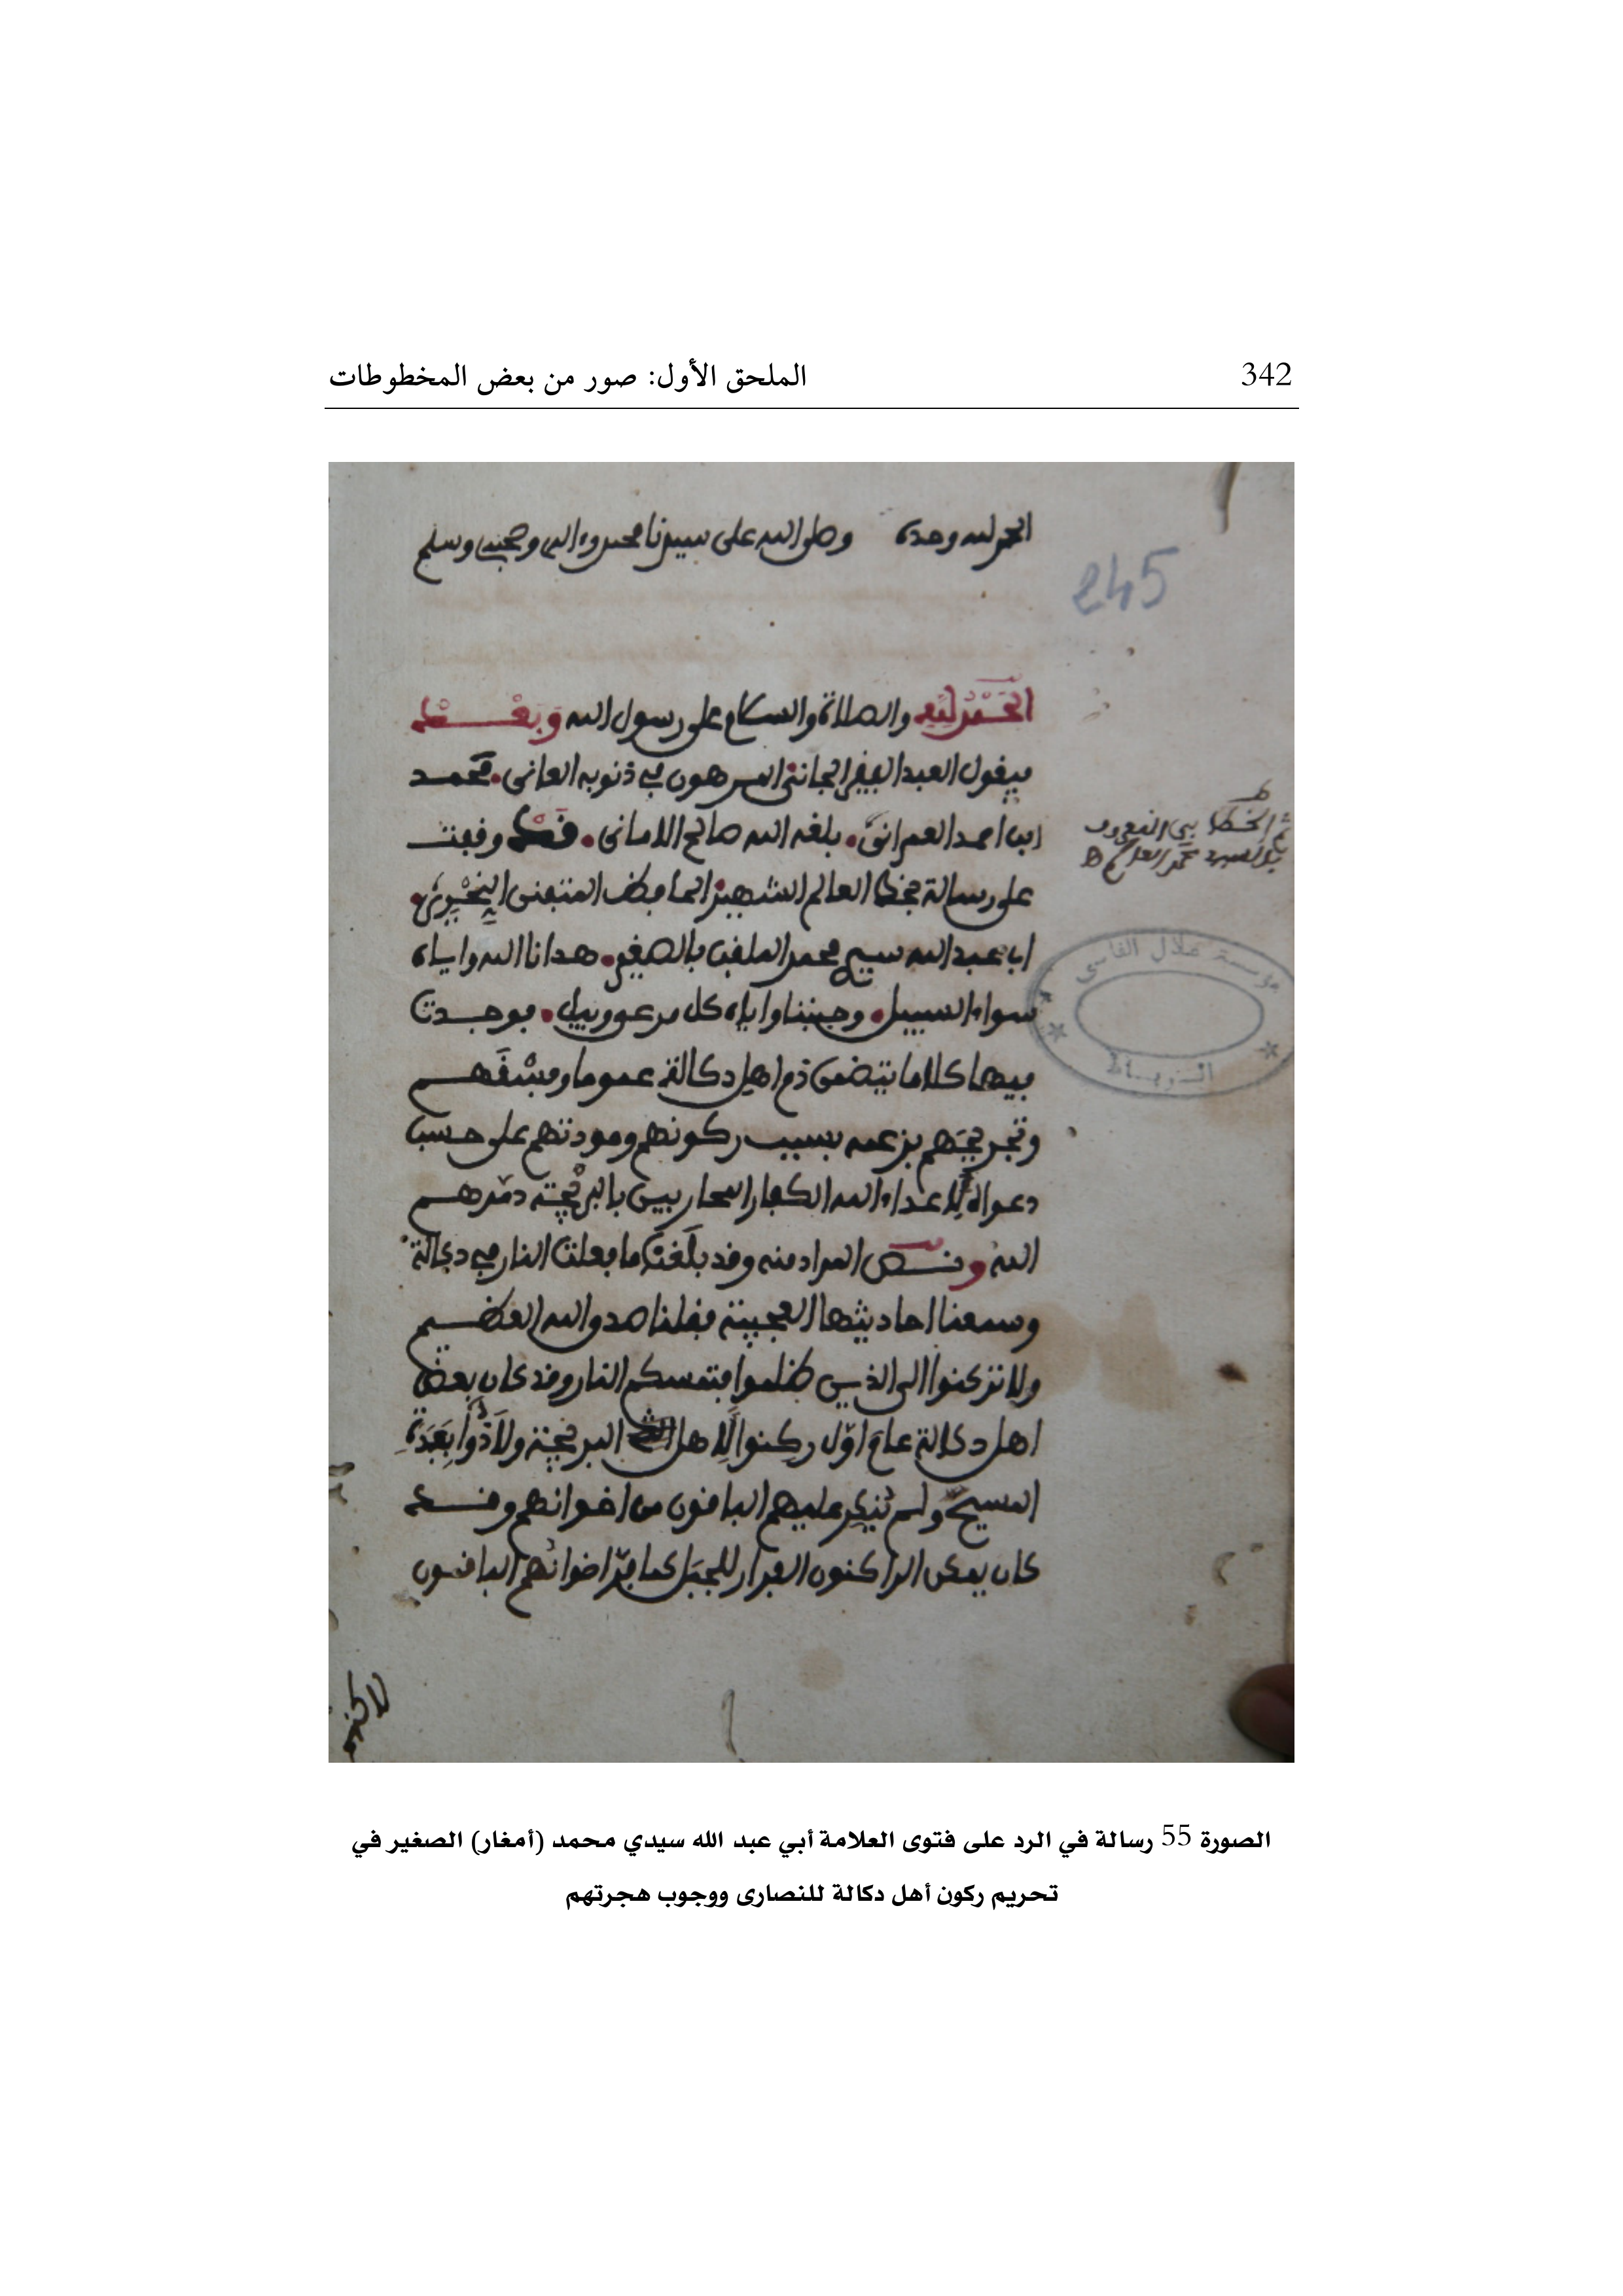 342
الملحق الأول: صور من بعض المخطوطات
الحمد لله وحده وصلى الله على سيدنا محمد وءاله وصحبه وسلم
245
الحمد لله والصلاة والسلام على رسول الله وبعد
فيقول العبد الفقير الجاني المرهون في ذنوبه العاني محمد
ابن احمد العمراني بلغه الله صالح الاماني فقد وقفت
على رسالة بخط العالم الشهير الحافظ المتفنن النحرير
ابي عبد الله سيدي محمد الملقب بالصغير هدانا الله واياه
سواء السبيل وجنبنا واياه كل مرعى وبيل فوجدت
فيها كلاما يتضمن ذم اهل دكالة عموما وفسقهم
وتجريحهم بزعمه بسبب ركونهم ومودتهم على حسب
دعواه لاعداء الله الكفار المحاربين بالبريجة دمرهم
الله ونص المراد منه وقد بلغنا ما فعلت النار في دكالة
وسمعنا احاديثها العجيبة فقلنا صدق الله العظيم
ولا تركنوا الى الذين ظلموا فتمسكم النار وقد كان بعض
اهل دكالة عام اول ركنوا لاهل البريجة ولاذوا بعبدة
المسيح ولم ينكر عليهم الباقون من اخوانهم وقد
كان يمكن الراكنون الفرار للجبل كما فر اخوانهم الباقون
مؤسسة علال الفاسي
الرباط
الصورة 55 رسالة في الرد على فتوى العلامة أبي عبد الله سيدي محمد (أمغار) الصغير في
تحريم ركون أهل دكالة للنصارى ووجوب هجرتهم